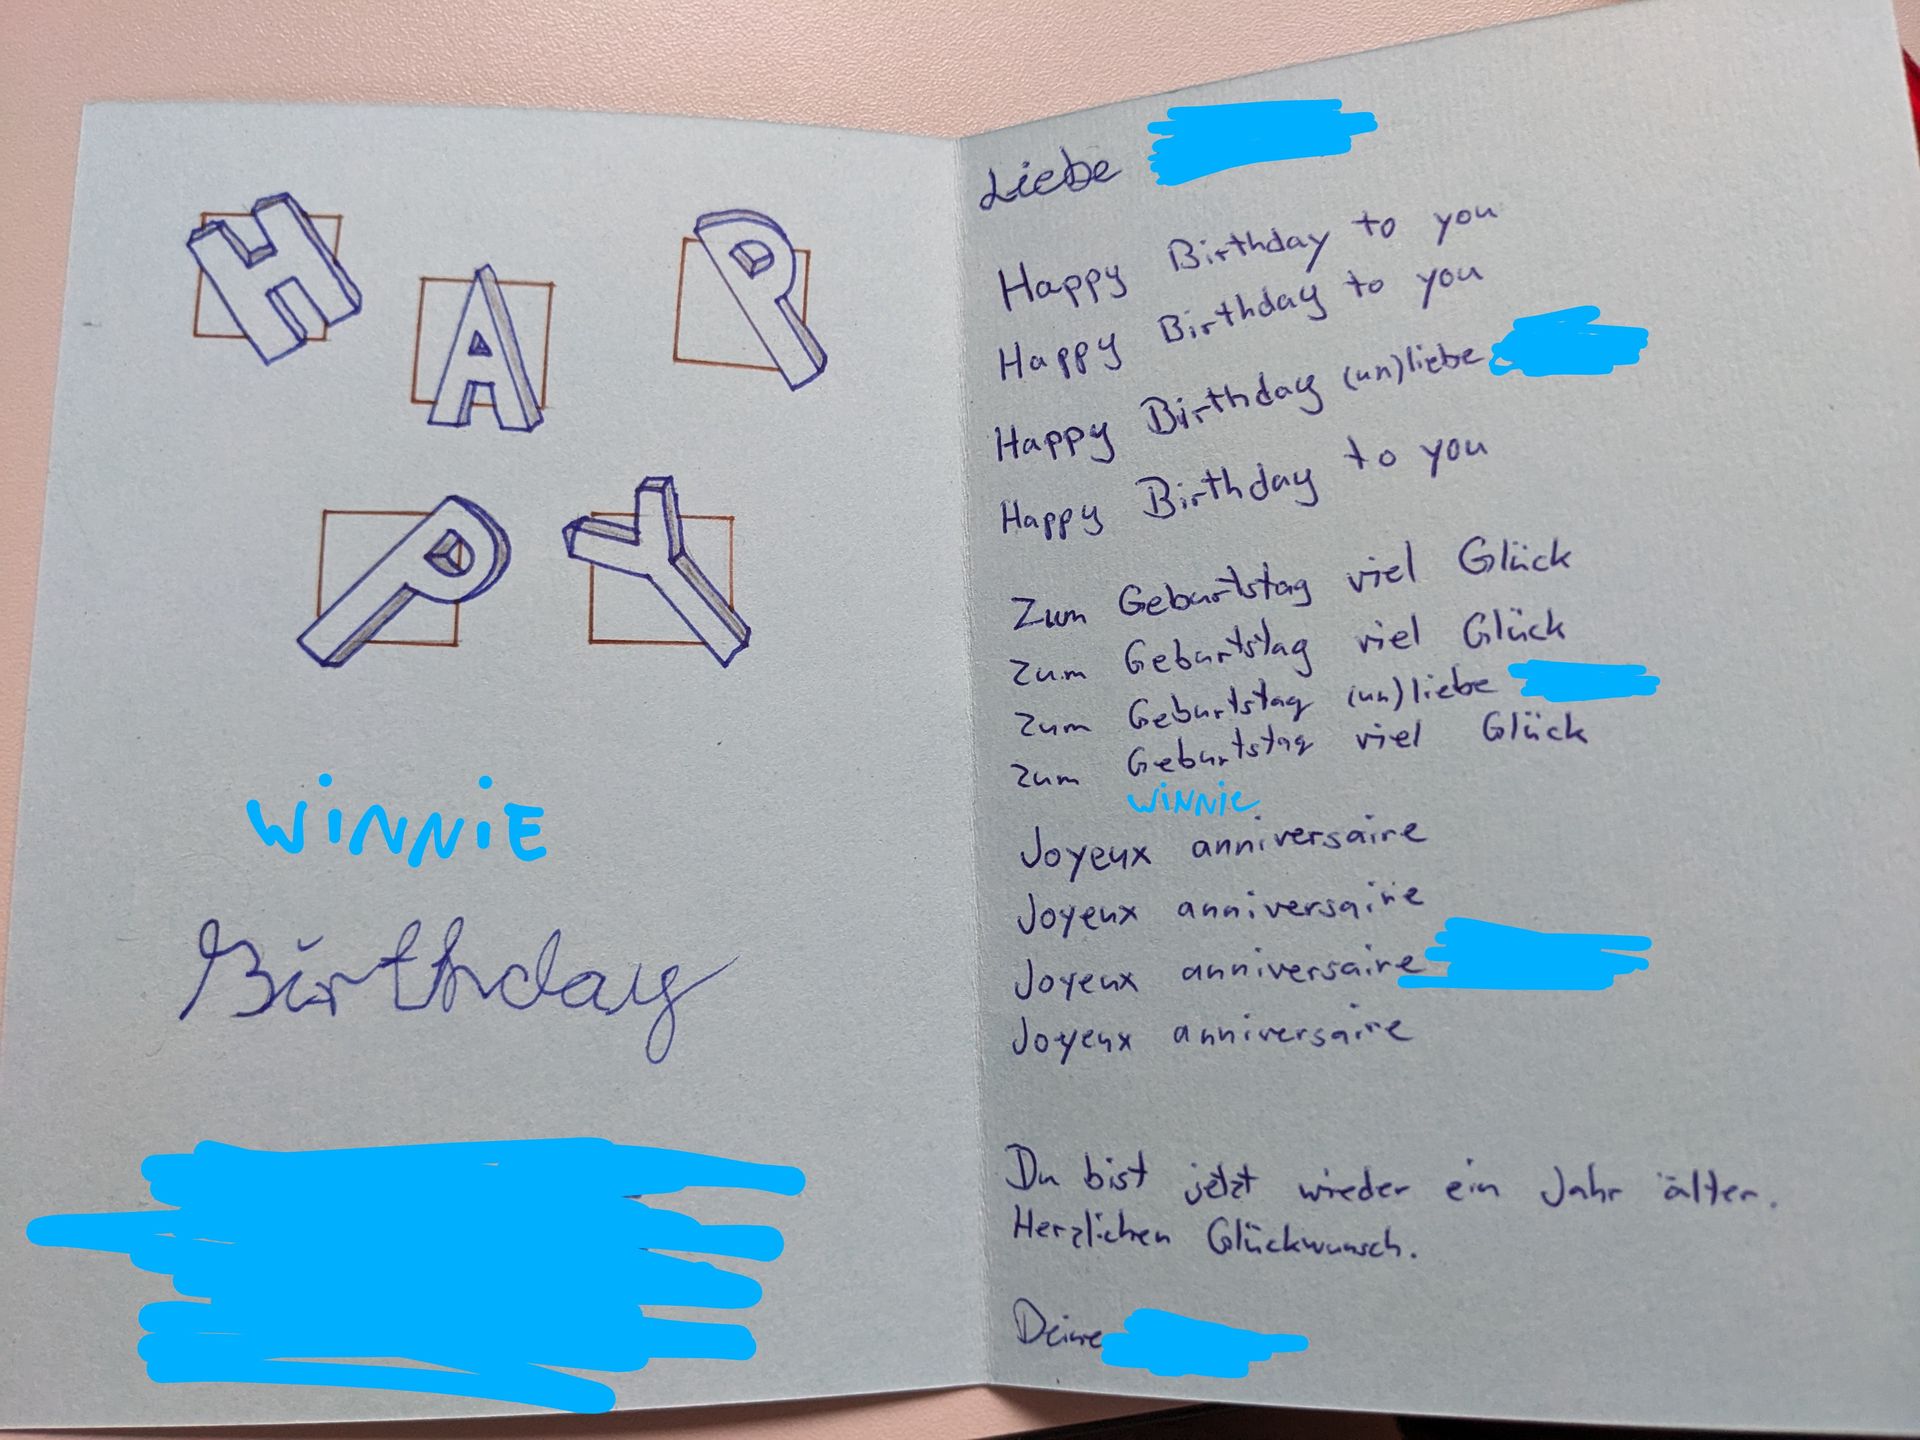 HAPPY
WiNNiE
Birthday
Liebe
Happy Birthday to you
Happy Birthday to you
Happy Birthday (un)liebe
Happy Birthday to you
Zum Geburtstag viel Glück
zum Geburtstag viel Glück
zum Geburtstag (un)liebe
zum Geburtstag viel Glück
WiNNiE
Joyeux anniversaire
Joyeux anniversaire
Joyeux anniversaire
Joyeux anniversaire
Du bist jetzt wieder ein Jahr älter.
Herzlichen Glückwunsch.
Deine